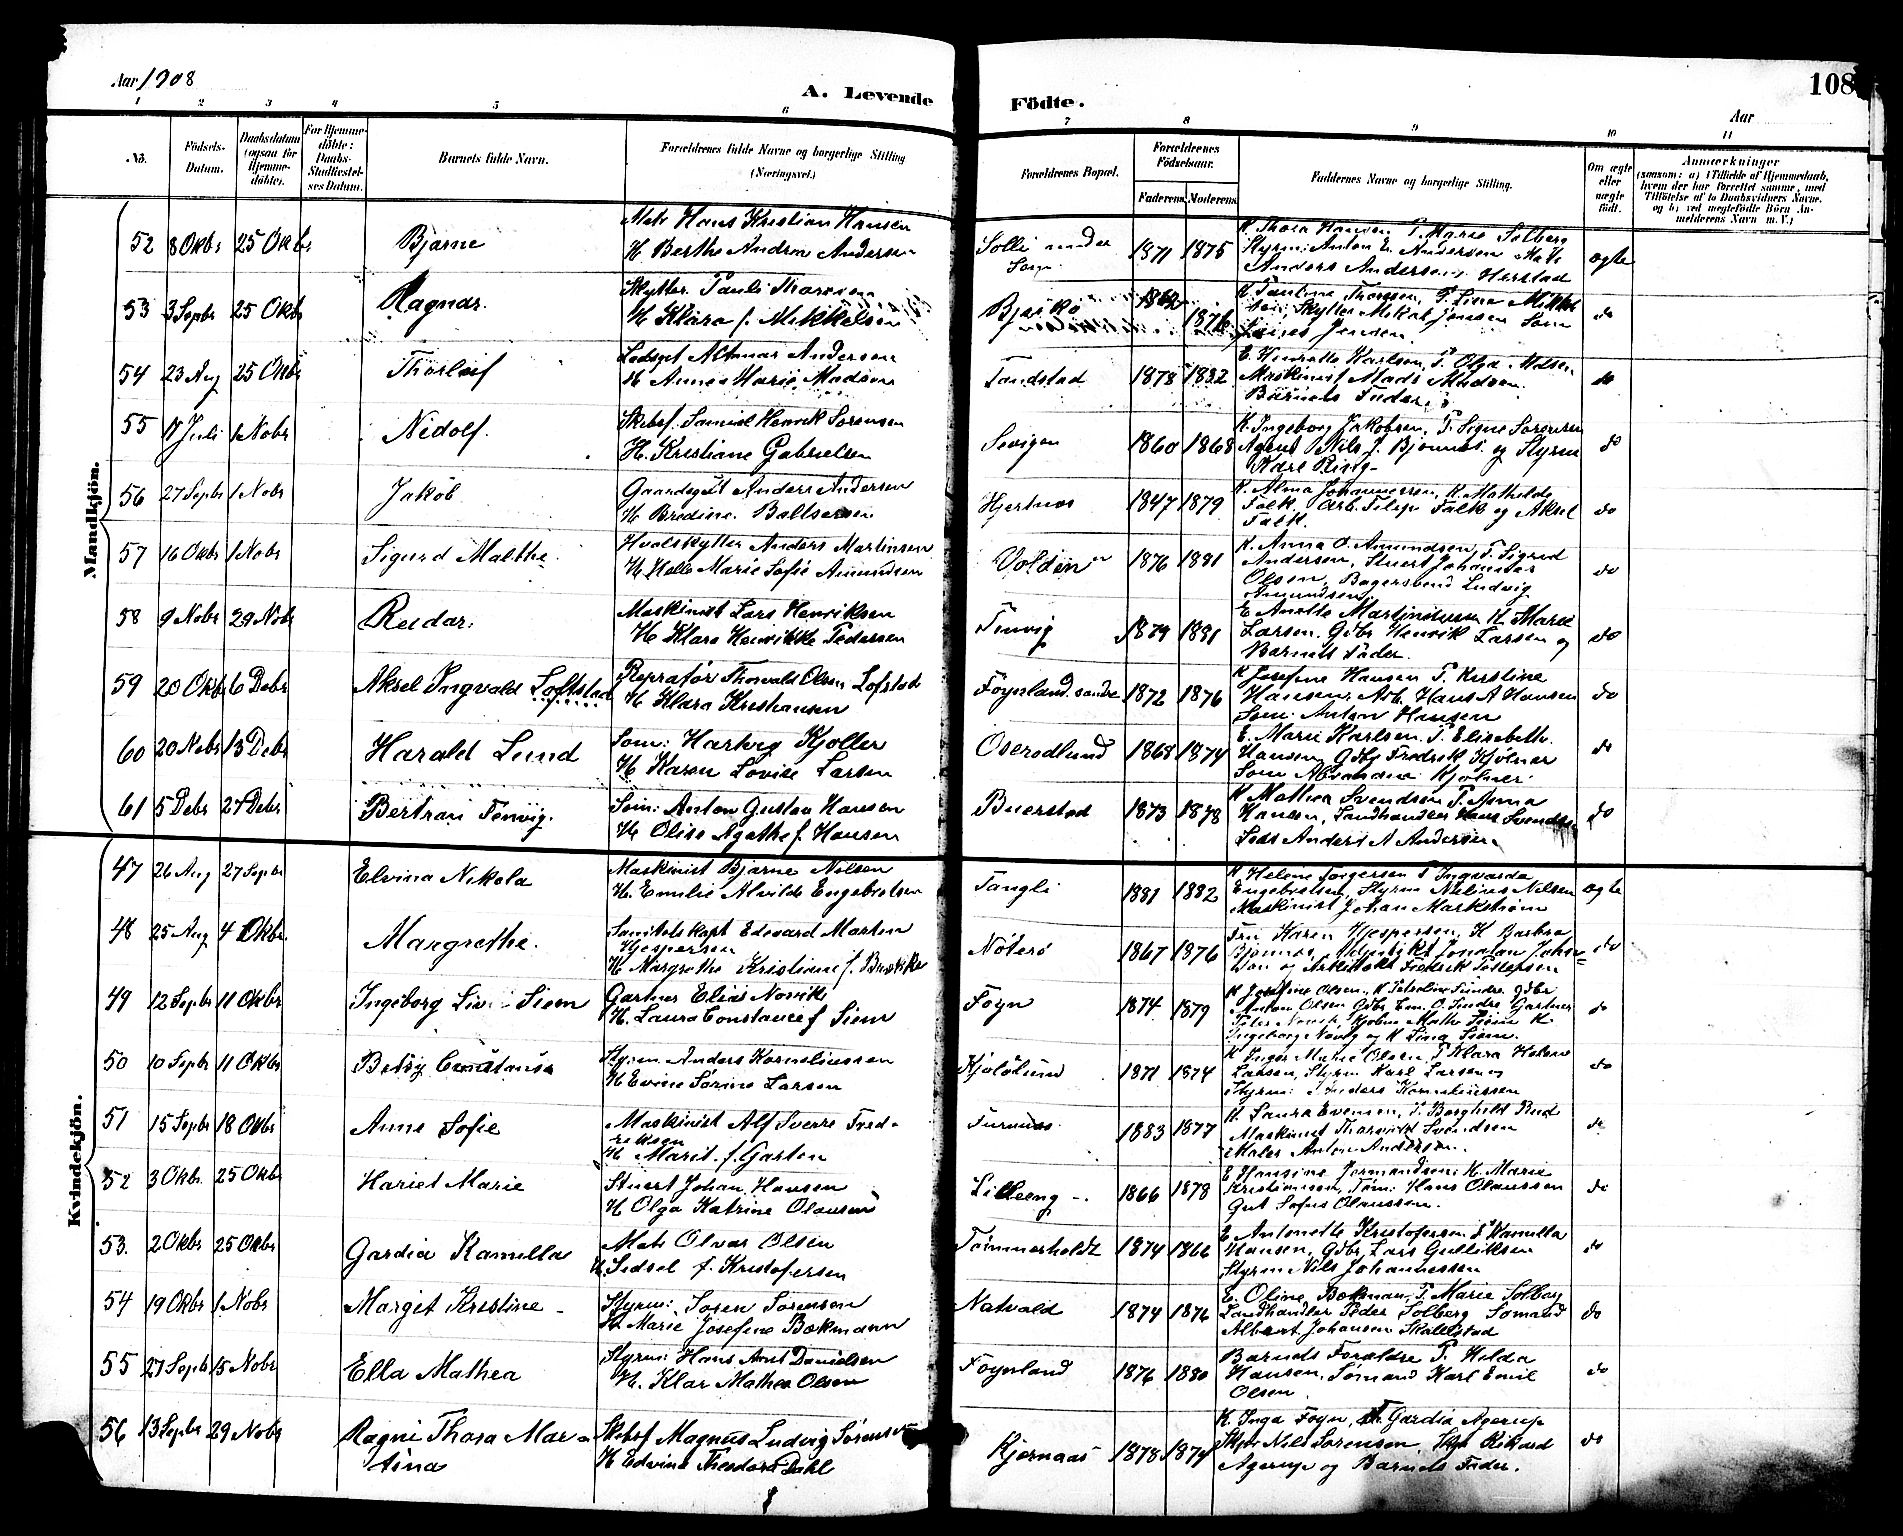 Aar 1908
A. Levende
Födte.
108
Aar
1 2 3 4 5 6 7 8 9 10 11
No.
Födsels-Datum.
Daabsdatum (ogsaa for Hjemme-döbte).
For Hjemme-döbte: Daabs-Stadfæstel-ses Datum.
Barnets fulde Navn.
Forældrenes fulde Navne og borgerlige Stilling (Næringsvei.)
Forældrenes Bopæl.
Forældrenes Födselsaar.
Faderens Moderens
Faddernes Navne og borgerlige Stilling.
Om ægte eller uægte födt.
Anmærkninger
(saasom: a) i Tilfælde af Hjemmedaab, hvem der har forrettet samme, med Tilföielse af to Daabsvidners Navne, og b) ved uægtefödte Börn Anmelderens Navn m. V.)
Mandkjön.
52 8 Okbr 25 Okbr Bjarne
Mats Hans Kristian Hansen
H Berthe Andrea Andersen
Solli nedre 1871 1875
K Thora Hansen P. Marie Solberg
Styrm: Anton E. Andersen
Anders Andersen Herstad
ægte
53 3 Sepbr 25 Okbr Ragnar.
Skytter Pauli Thoresen
H Klara f. Mikkelsen
Bjerkø 1876
Skytter Mikal Jensen Søm
Jensen
do
54 23 Aug 25 Okbr Thorleif
Altmar Andersen
H Anna Marie Madsen
Tandstad 1878 1882
E. Henrette Karlsen, P. Olga Madsen
Maskinist Mads Madsen
Barnets Fader
do
55 17 Juli 1 Nobr Nidolf.
Skibsf. Samuel Henrik Sørensen
H. Kristiane Gabrielsen
1860 1868
K. Ingeborg Jakobsen, P. Signe Sørensen
Agent Nils J. Bjønnes og Styrm
Karl Ring
do
56 27 Sepbr 1 Nobr Jakob
Anders Andersen
H Bredine Baltsersen
Hjertnes 1847 1879
K. Alma Johannessen, K. Mathilde
Falk. Arb. Filip Falk og Aksel
Falk.
do
57 16 Okbr 1 Nobr Sigurd Malthe
Hvalskytter Anders Martinsen
H Helle Marie Sofie Amundsen
Volden 1876 1881
K. Anna O. Amundsen, P. Sigrid
Andersen, Stuert Johannes
Olsen, Bagersvend Ludvig
Amundsen
do
58 9 Nobr 29 Nobr Reidar.
Maskinist Lars Henriksen
H Klara Henrikke Pedersen
Tenvig 1879 1881
E Anette Martinsen K Marie
Larsen. Gdbr Henrik Larsen og
Barnets Fader.
do
59 20 Okbr 6 Debr Aksel Ingvald Loftstad
Reprafør Thorvald Olsen Lofstad
H. Klara Kristiansen
Føynland søndre 1872 1876
K Josefine Hansen P. Kristine
Hansen, Arb. Hans A Hansen
Søm. Anton Hansen
do
60 20 Nobr 13 Debr Harald Lund
Søm: Hartvig Kjøller
H Karen Lovise Larsen
Oserødlund 1868 1874
E. Marie Karlsen. P. Elisabeth
Hansen, Gdbr Fredrik Hjølner
Søm Alexander Hjølner.
do
61 5 Debr 27 Debr Bertran Tenvig.
Søm: Anton Gustav Hansen
H. Olise Agathe f. Hansen
Buerstad 1873 1878
K Mathea Svendsen P. Anna
Hansen, Landhandler Hans Svendsen
Lods Anders A Andersen
do
Kvindekjön.
47 26 Aug 27 Sepbr Elvina Nikola
Maskinist Bjarne Nilsen
H. Emilie Alvilde Engebretsen
Tangli 1881 1882
K Helene Torgersen P Ingvarda
Engebretsen, Styrm Nelius Nilsen
Maskinist Johan Markstrøm
ægte
48 25 Aug 4 Okbr. Margrethe.
Sanitetskapt Edevard Morten
Hjespersen
H Margrethe Kristiane f. Buskike
Nøterø 1867 1876
Fru Karen Hjespersen, K Barbra
Bjønnes, Jonatan Johnson
og Arkitekt Fredrik
do
49 12 Sepbr 11 Okbr Ingeborg Siem
Gartner Elias Norvik
H. Laura Constance f Siem
Føyn 1874 1879
K Josefine Olsen, K Petoline Sundre. Gdbr
Anton Olsen Gdbr Em. O. Sundre. Gartner
Peter Norvik
do
50 10 Sepbr 11 Okbr Betsy Constansa
Styrm. Anders Korneliussen
H Evine Sørine Larsen
Kjølølund 1871 1874
K Inger Marie Olsen, P Klara Helene
Larsen, Styrm Karl Larsen og
Styrm: Anders Korneliussen
do
51 15 Sepbr 18 Okbr Anne Sofie
Maskinist Alf Sverre Fred-
riksen
H Marit f. Garten
Furunes 1883 1877
K. Laura Evensen, P. Borghild Rud
Maskinist Thorvald Svendsen
Maler Anton Andersen.
do
52 3 Okbr. 25 Okbr Hariet Marie
Stuert Johan Hansen
H Olga Katrine Olausen
Lilleeng 1866 1878
E Hansine Jormandsen K. Marie
Kristiansen, Tøm: Hans Olaussen
Gut Sofus Olaussen.
do
53. 2 Okbr 25 Okbr Gardia Kamilla
Mats Olvar Olsen
H. Sidsel f. Kristofersen
Tømmerholdt 1874 1866
E Antonette Kristofersen P Kamilla
Hansen, Gdbr Lars Gulliksen
Styrm Nils Johannessen
do
54 19 Okbr 1 Nobr Margit Kristine
Styrm: Søren Sørensen
H. Marie Josefine Bækmann
Natvald 1874 1876
E. Oline Bækman, P. Marie Solberg
Landhandler Peder Solberg Sømand
Albert Johansen Skallstad
do
55 27 Sepbr 15 Nobr Ella Mathea
Styrm: Hans Arnt Danielsen
H. Klar Mathea Olsen
Føynland 1876 1880
Barnets Forældre P. Hilda
Hansen, Sømand Karl Emil
Olsen
do
56 13 Sepbr 29 Nobr Ragni Thora Mar-
tina
Skibsf Magnus Ludvig Sørensen
H Edvine Theodora Dahl
Kjernaas 1878 1874
K. Inga Føyn, P. Gardia Agerup
Skpr Nils Sørensen, Rikard
Agerup og Barnets Fader.
do